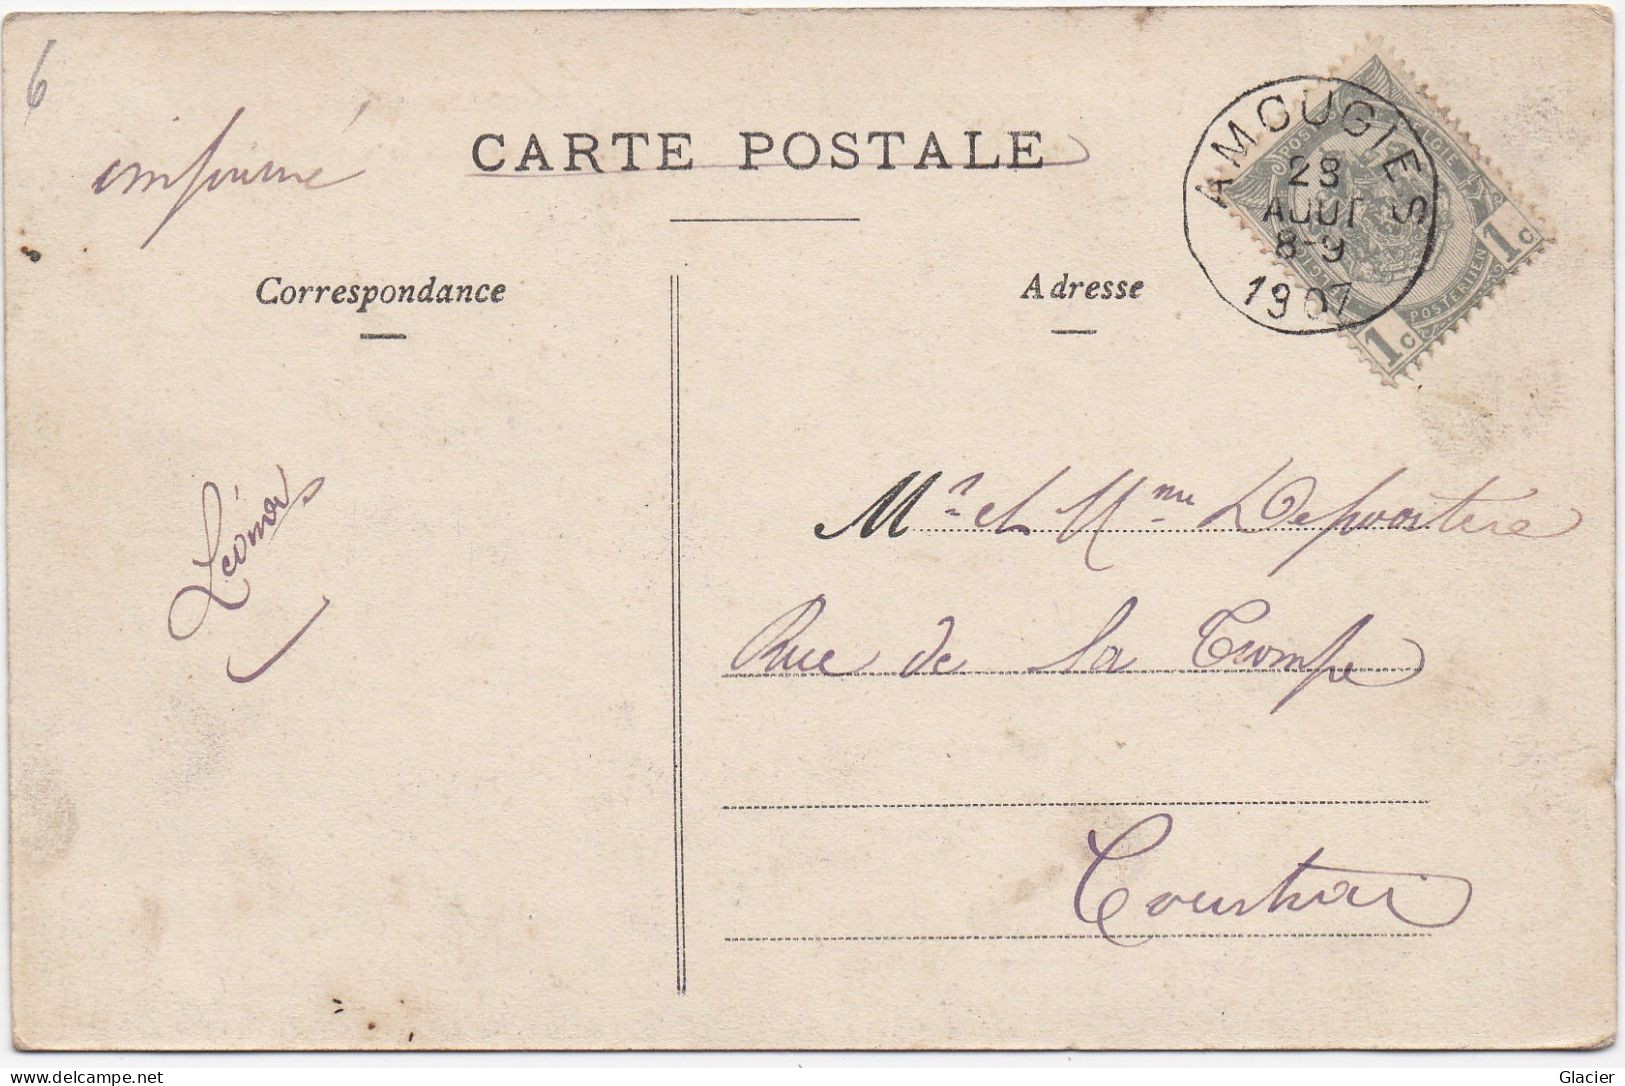 6
imprimé
CARTE POSTALE
Correspondance
Adresse
AMOUGIES
23
AOUT
8-9
1907
BELGIE
1c
1c
POSTERIJEN
Léonor
Mr et Mme Depoortere
Rue de la Trompe
Courtrai
delcampe.net
Glacier